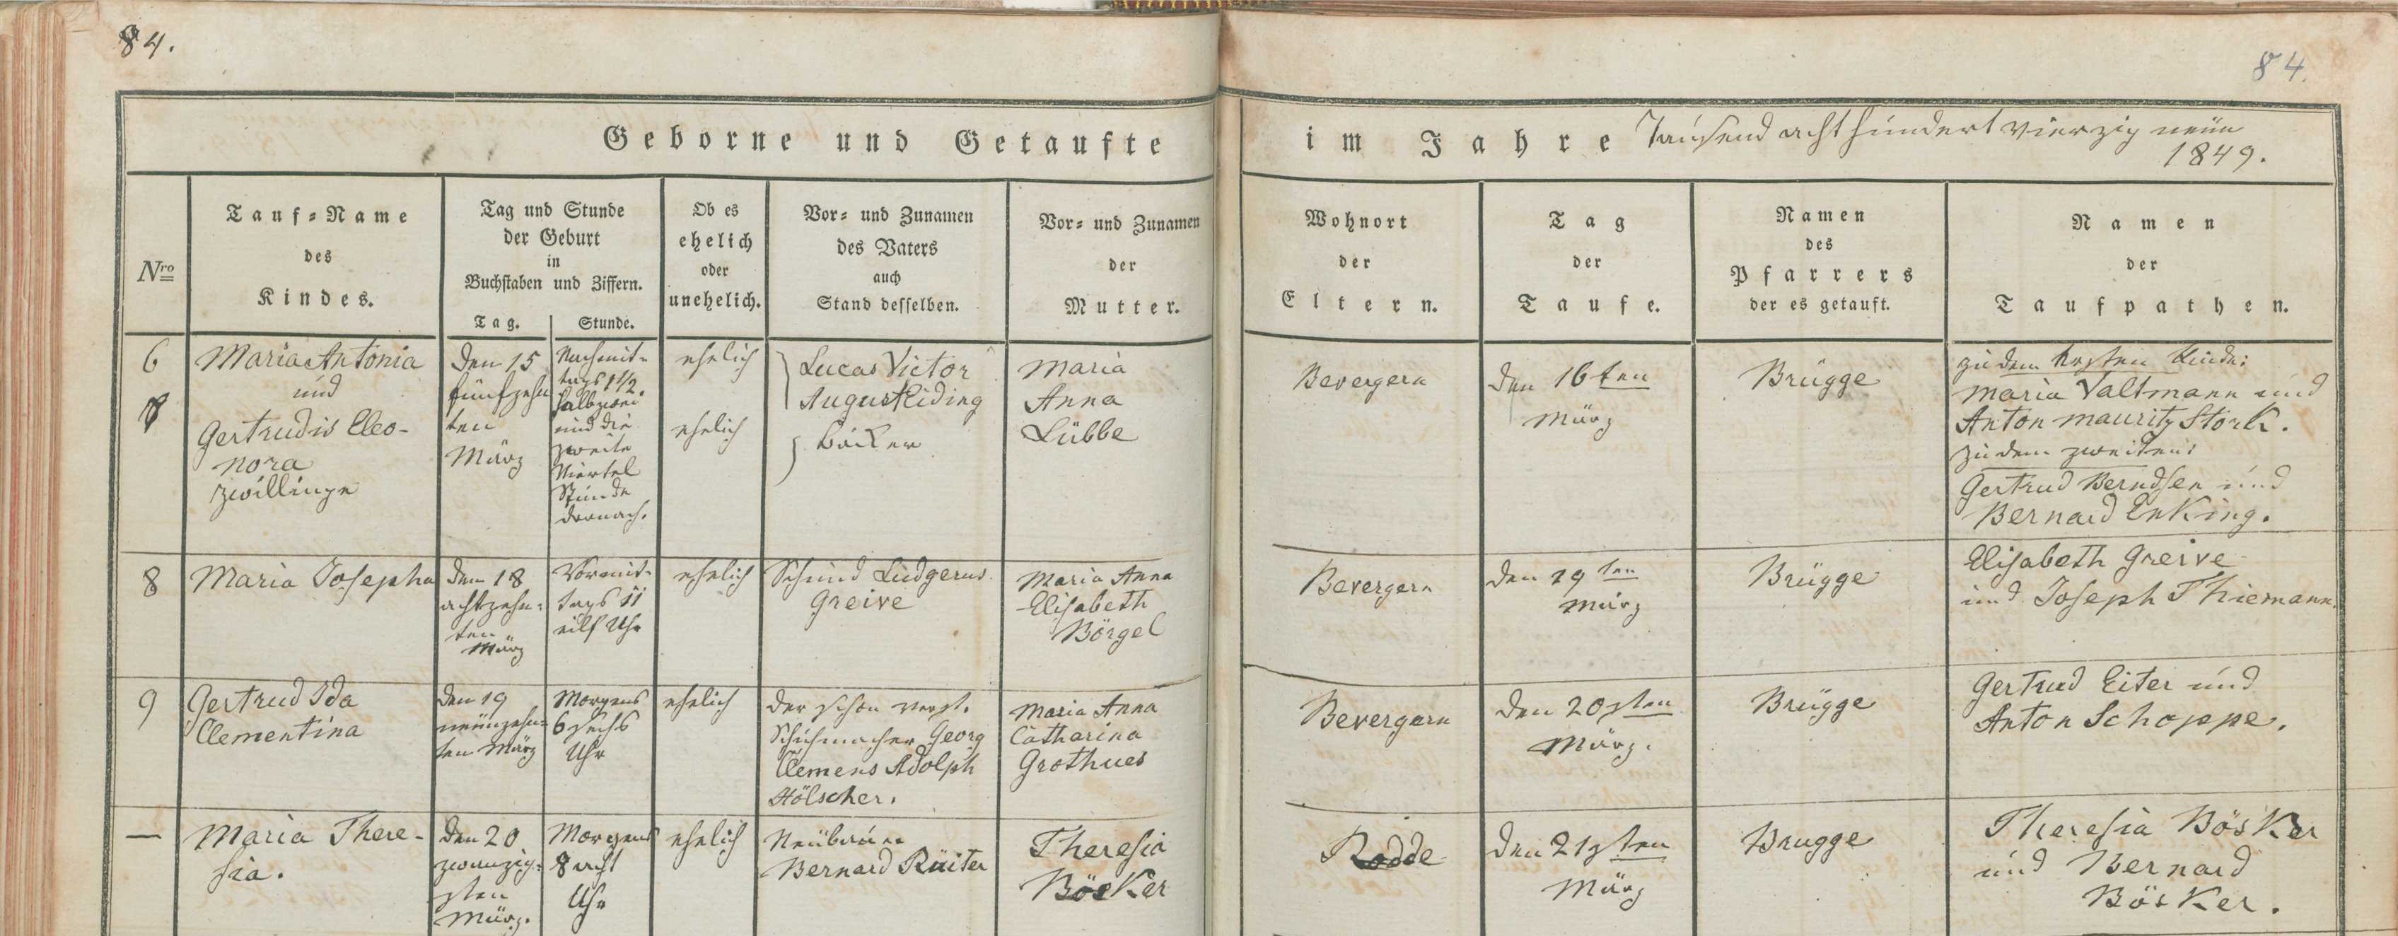 84.
84.
Geborne und Getaufte
im Jahre Tausend acht hundert vierzig neun
1849.
Nro
Tauf=Name
des
Kindes.
Tag und Stunde
der Geburt
in
Buchstaben und Ziffern.
Tag.
Stunde.
Ob es
ehelich
oder
unehelich.
Vor= und Zunamen
des Vaters
auch
Stand desselben.
Vor= und Zunamen
der
Mutter.
Wohnort
der
Eltern.
Tag
der
Taufe.
Namen
des
Pfarrers
der es getauft.
Namen
der
Taufpathen.
6
7
Maria Antonia
und
Gertrudis Eleo-
nora
Zwillinge
den 15
fünfzehn
ten
März
Nachmit=
tags 1 1/2
halbzwei
und die
zweite
Viertel
Stunde
darnach.
ehelich
ehelich
Lucas Victor
August Kiding
Bäcker
Maria
Anna
Lübbe
Bevergern
den 16ten
März
Brügge
zu dem ersten Kinde:
Maria Valtmann und
Anton Mauritz Störk.
zu dem zweiten:
Gertrud Berndsen und
Bernard Enking.
8
Maria Josepha
den 18
achtzehn=
ten
März
Vormit=
tags 11
eilf Uhr
ehelich
Schmid Ludgerus
Greive
Maria Anna
Elisabeth
Börgel
Bevergern
den 19ten
März
Brügge
Elisabeth Greive
und Joseph Thiemann.
9
Gertrud Ida
Clementina
den 19
neunzehn=
ten März
Morgens
6 sechs
Uhr
ehelich
der schon verst.
Schuhmacher Georg
Clemens Adolph
Hölscher.
Maria Anna
Catharina
Grothues
Bevergern
den 20sten
März.
Brügge
Gertrud Eiter und
Anton Schoppe.
—
Maria There-
sia.
den 20
zwanzig=
sten
März.
Morgens
8 acht
Uhr
ehelich
Neubauer
Bernard Rüiter
Theresia
Bösker
Rodde
den 21sten
März
Brugge
Theresia Bösker
und Bernard
Bösker.